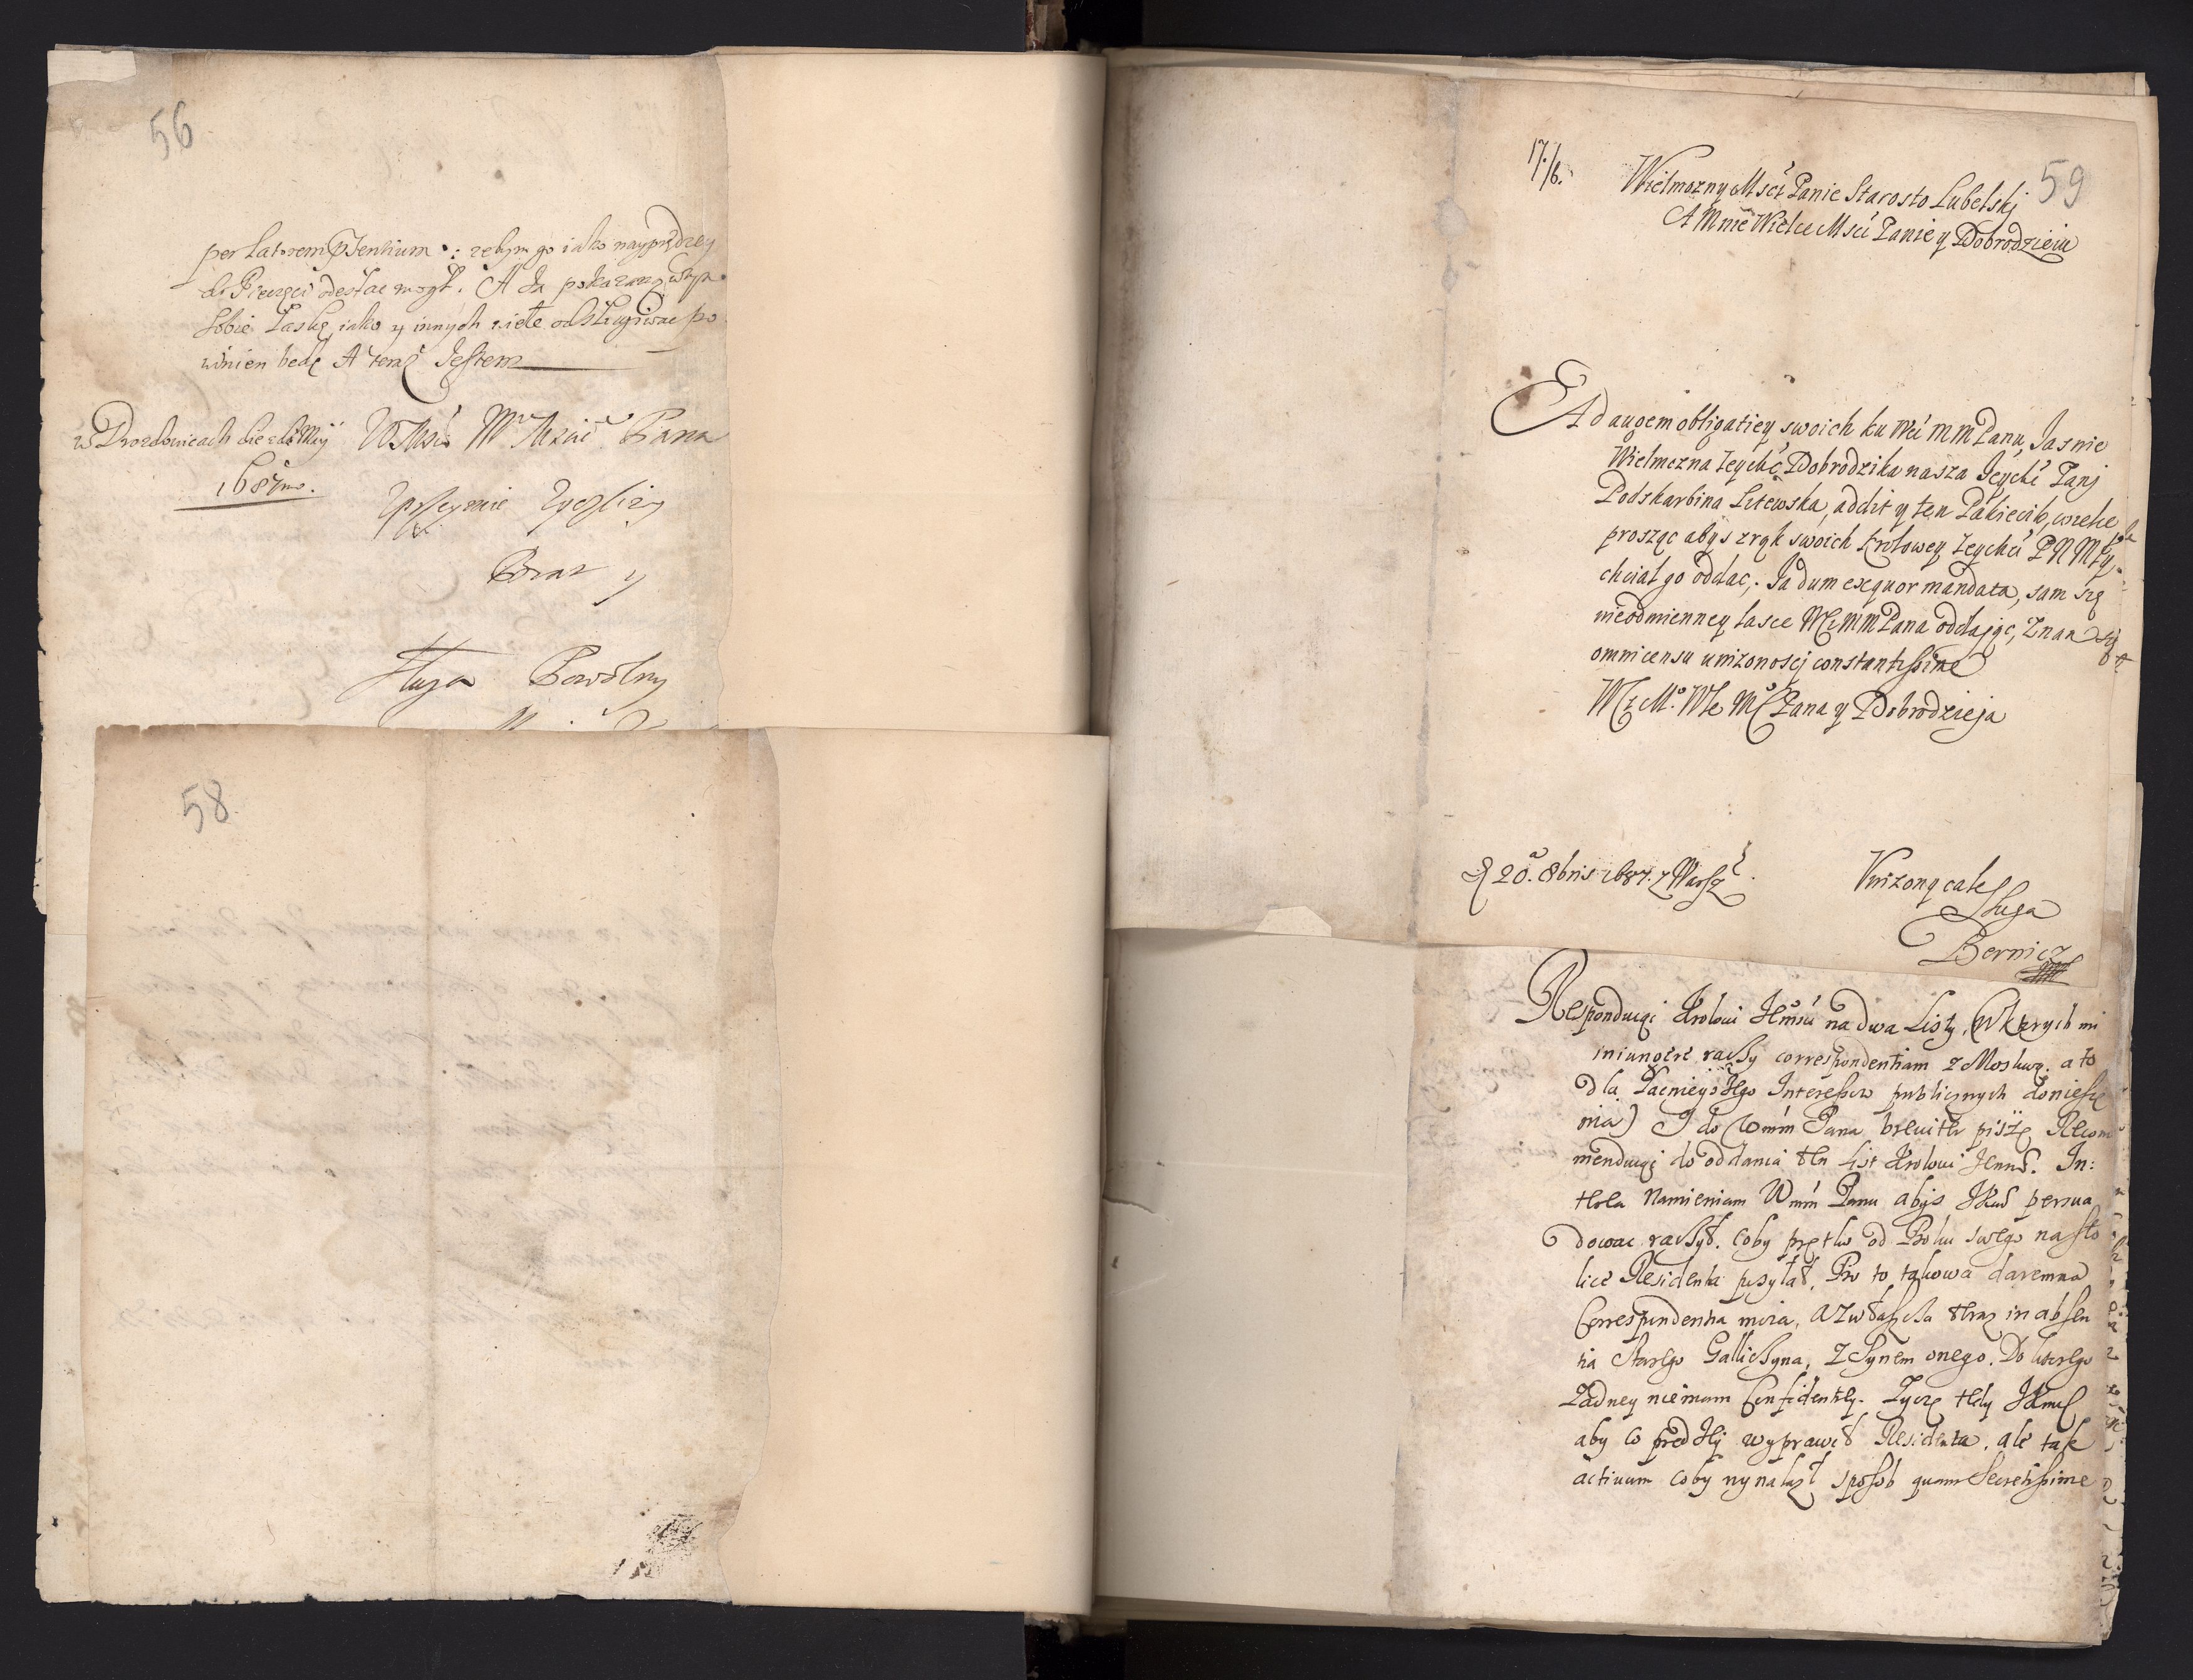 56
per Latorem Psentium : zebym go iako nayprędzey
do Pieczęci odesłac mogł. A za pokazaną w tym
sobie Łaskę iako y innych wiele odsługiwac po
winien będę A teraz Jestem
w Drozdowicach die
1687mo.
Wmści Mm Mści Pana
Uprzeymie Zyczliwy
Brat y
Sługa Powolny
58
17./6.
59
Wielmozny Mści Panie Starosto Lubelskj
A Mnie Wielce Mści Panie y Dobrodzieiu
Ad augem obligatiey swoich ku Wci MM Panu, Jasnie
Wielmozna Jeyc Dobrodzika nasza Jeyc Panj
Podskarbina Litewska, addit y ten Pakiecik, wielce
prosząc abys z rąk swoich Krolowey Jeyc P N Mscy
chciał go oddac. Ja dum exequor mandata, sam się
nieodmienney łasce Wc MM Pana oddając, Znam się
omni censu unizonoscj constantissime
Wc M. Wc Mści Pana y Dobrodzieja
20. 8bris 1687. z Warsz
Vnizony cale
Sługa
Bernicz
Respondując Krolowi Jemsci na dwa Listy, (w ktorych mi
iniungere raczy correspondentiam z Moskwą. a to
dla Interessow publicznych doniesie
nia) I do Wmm Pana breuiter piszę Recom
menduiąc do oddania ten List Krolowi Jemś. In:
terea Namieniam Wmm Panu abys persua
dowac raczył. coby prętko od Boku swego na sto
lice Residenta posyłał. Bo to takowa daremna
Correspondentia moia, a zwłaszcza teraz in absen
tia Starego Galliczyna, z Synem onego. Do ktorego
Zadney nie mam Confidentiey. Zyczę tedy
aby co prędzey wyprawił Residenta. ale tak
actiuum coby wynalazł sposob quam Secretissime